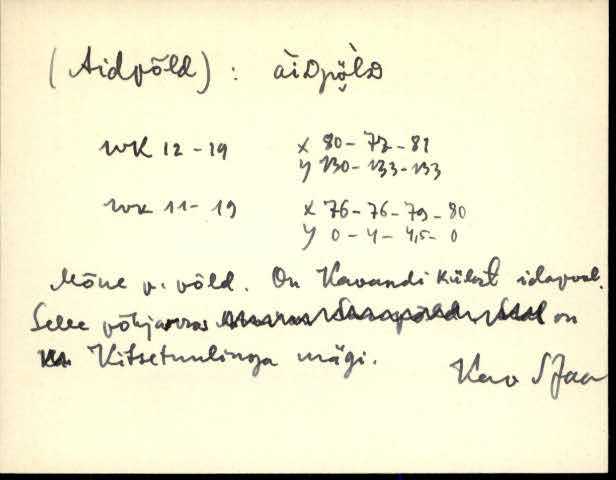 (Aidpõld) : àiDpǫ̈̀lD
WK 12 - 19 x 80 - 77 - 81
y 130 - 133 - 133
WK 11 - 19 x 76 - 76 - 79 - 80
y 0 - 4 - 4,5 - 0
Mõne p. põld. On Kavandi külast idapool.
Selle põhjaosas on
Kitsetuulinga mägi.